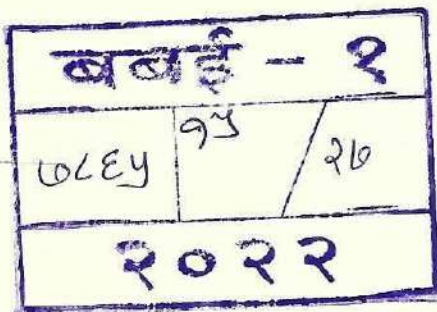 बबई - १
७८६५ १५ / २७
२०२२